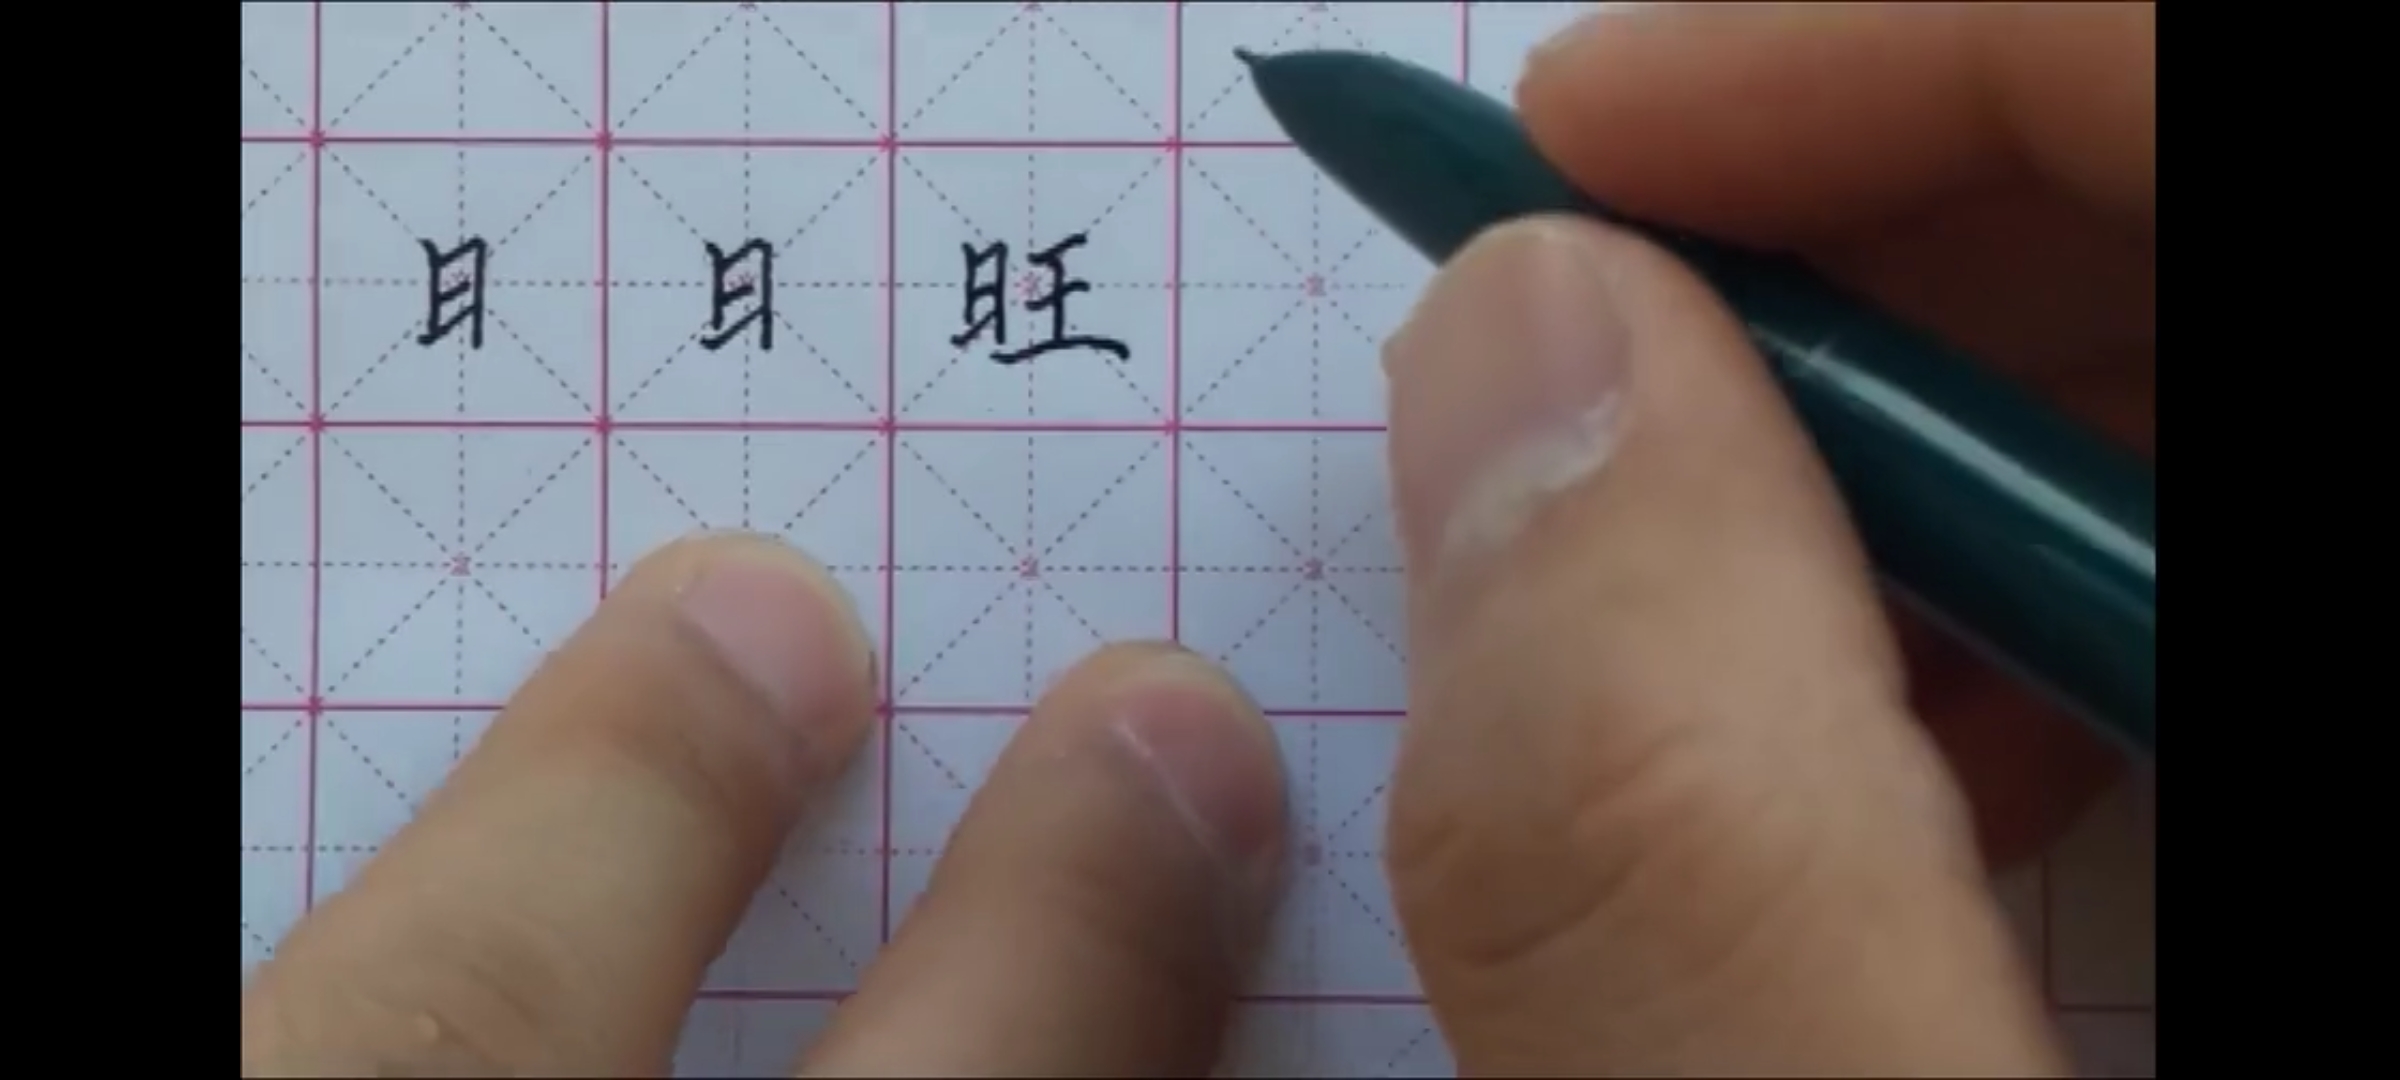 日 日 旺